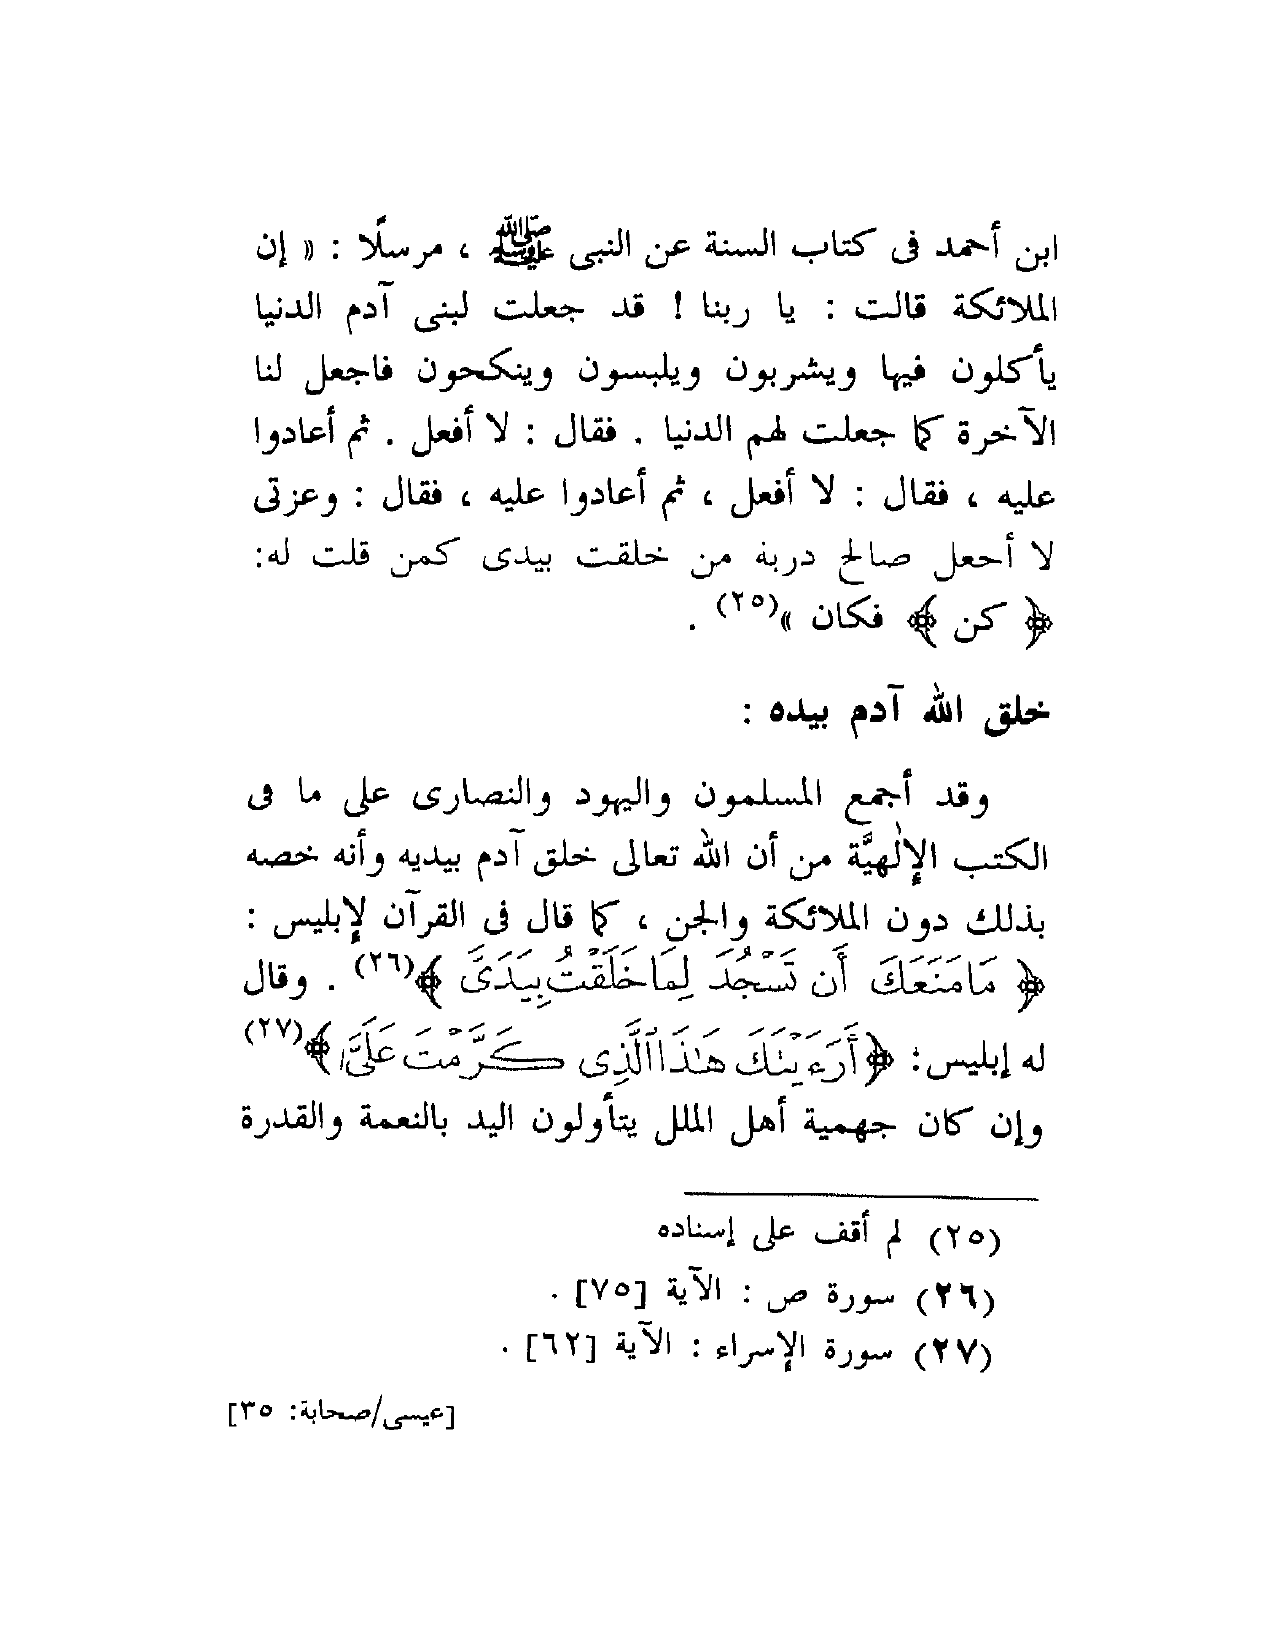 ابن أحمد فى كتاب السنة عن النبى ﷺ ، مرسلًا : « إن
الملائكة قالت : يا ربنا ! قد جعلت لبنى آدم الدنيا
يأكلون فيها ويشربون ويلبسون وينكحون فاجعل لنا
الآخرة كما جعلت لهم الدنيا . فقال : لا أفعل . ثم أعادوا
عليه ، فقال : لا أفعل ، ثم أعادوا عليه ، فقال : وعزتى
لا أجعل صالح دربة من خلقت بيدى كمن قلت له:
﴿ كن ﴾ فكان »(٢٥) .
خلق الله آدم بيده :
وقد أجمع المسلمون واليهود والنصارى على ما فى
الكتب الإلٰهيَّة من أن الله تعالى خلق آدم بيديه وأنه خصه
بذلك دون الملائكة والجن ، كما قال فى القرآن لإبليس :
﴿ مَا مَنَعَكَ أَن تَسْجُدَ لِمَا خَلَقْتُ بِيَدَىَّ ﴾(٢٦) . وقال
له إبليس: ﴿أَرَءَيْتَكَ هَٰذَا ٱلَّذِى كَرَّمْتَ عَلَىَّ﴾(٢٧)
وإن كان جهمية أهل الملل يتأولون اليد بالنعمة والقدرة
(٢٥) لم أقف على إسناده
(٢٦) سورة ص : الآية [٧٥] .
(٢٧) سورة الإسراء : الآية [٦٢] .
[عيسى/صحابة: ٣٥]